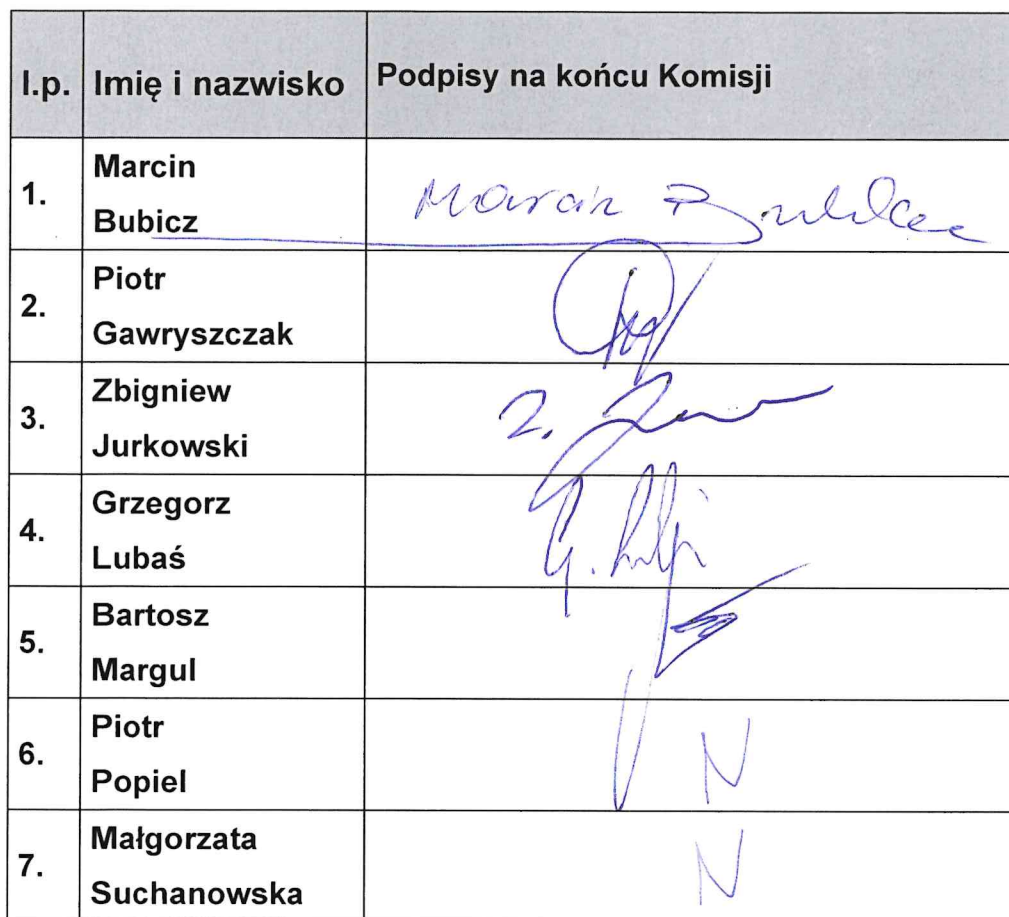 l.p. Imię i nazwisko Podpisy na końcu Komisji
1. Marcin
Bubicz
Marcin
2. Piotr
Gawryszczak
3. Zbigniew
Jurkowski
Z.
4. Grzegorz
Lubaś
G.
5. Bartosz
Margul
6. Piotr
Popiel
N
7. Małgorzata
Suchanowska
N